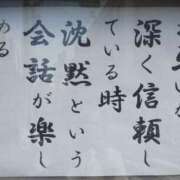 深く信頼し
ている時
沈黙という
会話が楽し
める